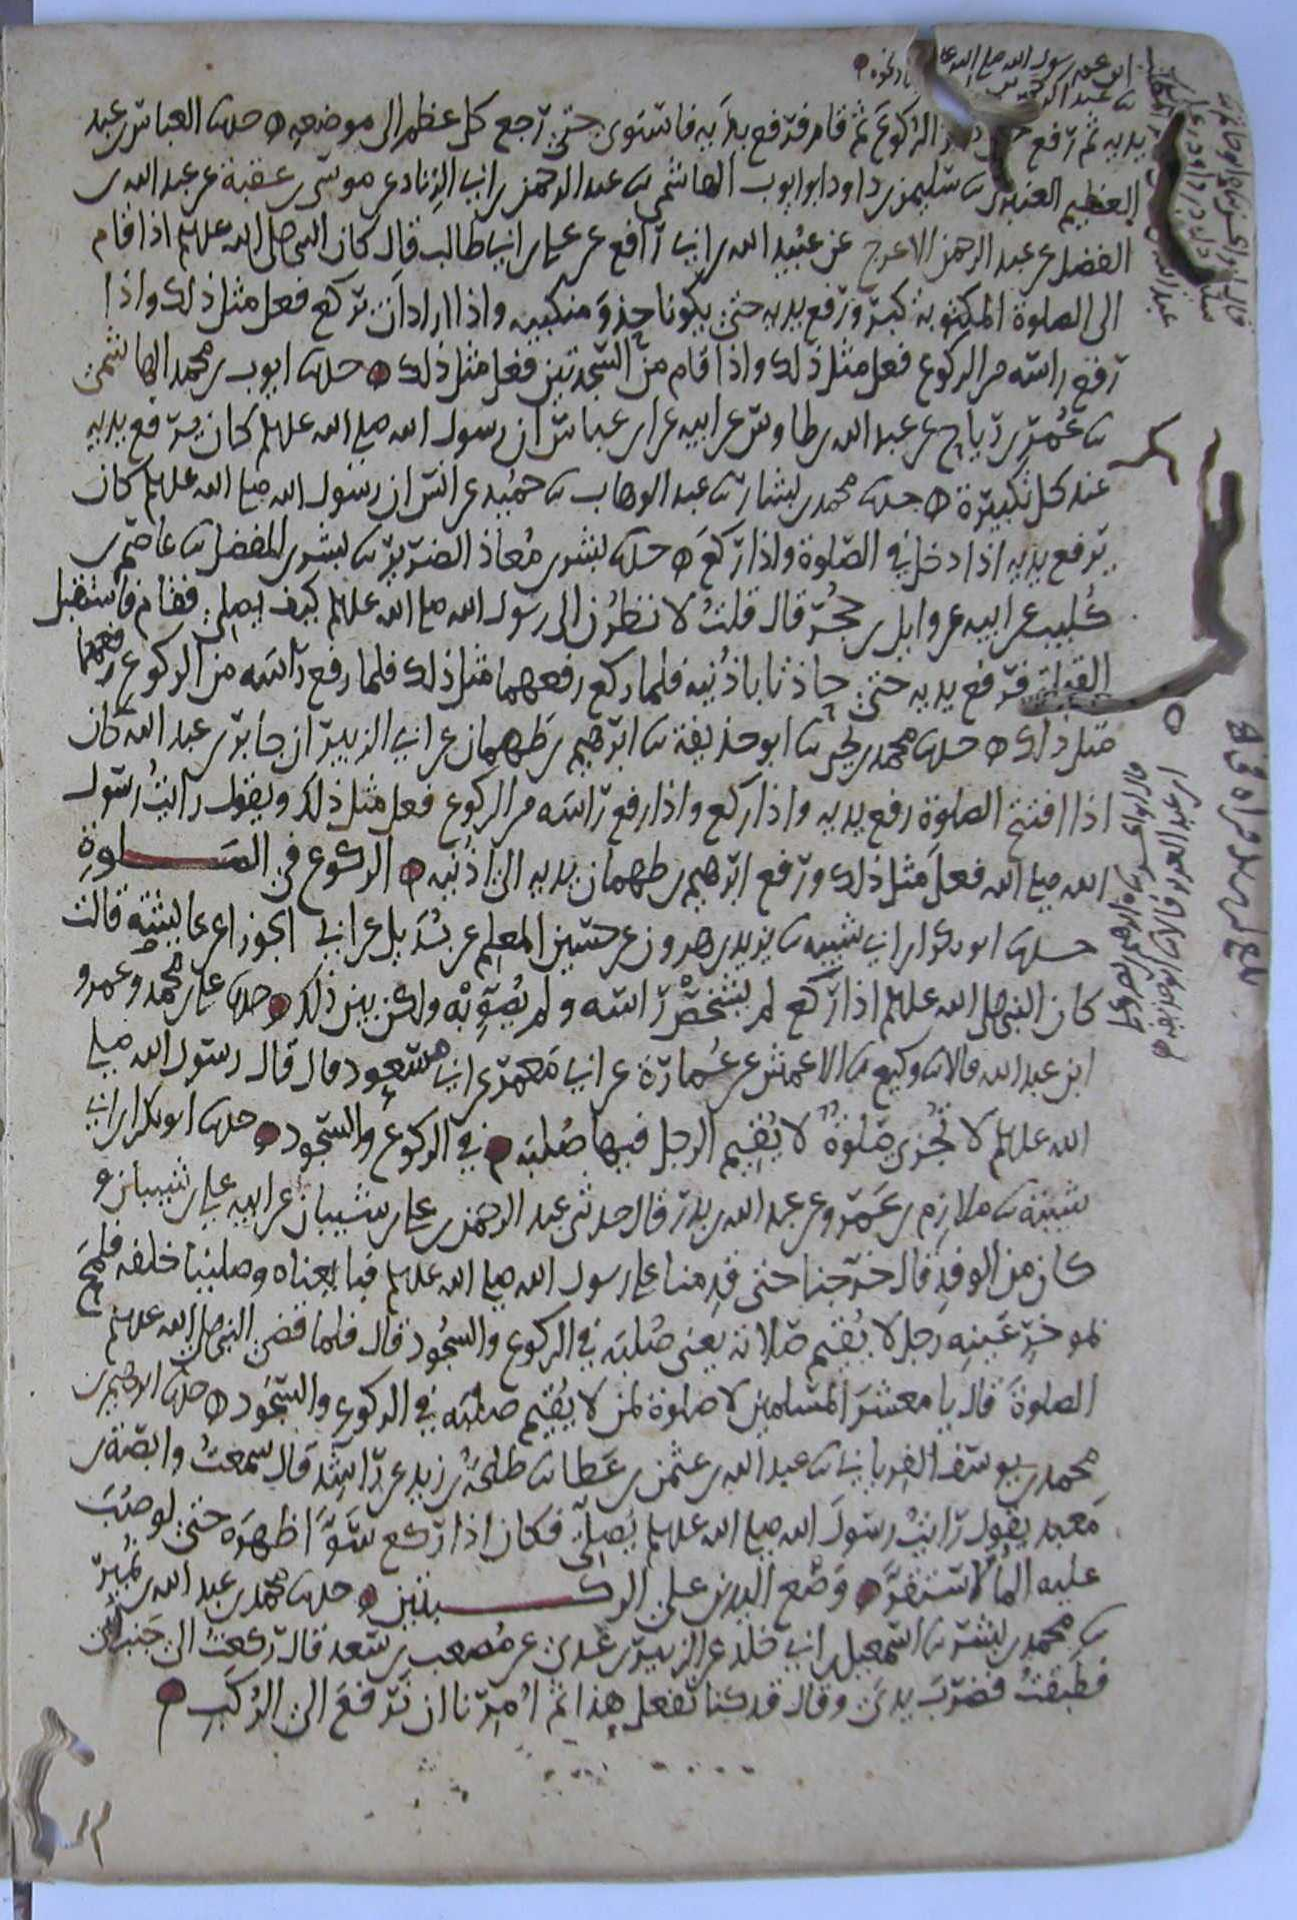 يديه ثم رفع حين كبر الركوع ثم قام فرفع يديه فاستوى حتى رجع كل عظم الى موضعه حدثنا العباس بن عبد
العظيم العنبري ثنا سليمن بن داود ابو ايوب الهاشمي ثنا عبد الرحمن بن ابي الزناد عن موسى بن عقبة عن عبد الله بن
الفضل عن عبد الرحمن الاعرج عن عبيد الله بن ابي رافع عن علي بن ابي طالب قال كان النبي صلى الله عليه وسلم اذا قام
الى الصلوة المكتوبة كبر ورفع يديه حتى يكونا حذو منكبيه واذا اراد ان يركع فعل مثل ذلك واذا
رفع راسه من الركوع فعل مثل ذلك واذا قام من السجدتين فعل مثل ذلك حدثنا ايوب بن محمد الهاشمي
ثنا عمر بن رياح عن عبد الله بن طاوس عن ابيه عن ابن عباس ان رسول الله صلى الله عليه وسلم كان يرفع يديه
عند كل تكبيرة حدثنا محمد بن بشار ثنا عبد الوهاب ثنا حميد عن انس ان رسول الله صلى الله عليه وسلم كان
يرفع يديه اذا دخل في الصلوة واذا ركع حدثنا بشر بن معاذ الضرير ثنا بشر بن المفضل ثنا عاصم بن
كليب عن ابيه عن وايل بن حجر قال قلت لانظرن الى رسول الله صلى الله عليه وسلم كيف يصلي فقام فاستقبل
القبلة فرفع يديه حتى حاذتا باذنيه فلما ركع رفعهما مثل ذلك فلما رفع راسه من الركوع رفعهما
مثل ذلك حدثنا محمد بن يحيى ثنا ابو حذيفة ثنا ابرهيم بن طهمان عن ابي الزبير ان جابر بن عبد الله كان
اذا افتتح الصلوة رفع يديه واذا ركع واذا رفع راسه من الركوع فعل مثل ذلك ويقول رايت رسول
الله صلى الله فعل مثل ذلك ورفع ابرهيم بن طهمان يديه الى اذنيه الركوع في الصلوة
حدثنا ابو بكر بن ابي شيبة ثنا يزيد بن هرون عن حسين المعلم عن بديل عن ابي الجوزاء عن عايشة قالت
كان النبي صلى الله عليه وسلم اذا ركع لم يشخص راسه ولم يصوبه ولكن بين ذلك حدثنا علي بن محمد وعمرو
ابن عبد الله قالا ثنا وكيع ثنا الاعمش عن عمارة عن ابي معمر عن ابي مسعود قال قال رسول الله صلى
الله عليه وسلم لا تجزى صلوة لا يقيم الرجل فيها صلبه في الركوع والسجود حدثنا ابو بكر بن ابي
شيبة ثنا ملازم بن عمرو عن عبد الله بن بدر قال حدثني عبد الرحمن بن علي بن شيبان عن ابيه علي بن شيبان و
كان من الوفد قال خرجنا حتى قدمنا على رسول الله صلى الله عليه وسلم فبايعناه وصلينا خلفه فلمح
بموخر عينه رجل لا يقيم صلاته يعني صلبه في الركوع والسجود قال فلما قضى النبي صلى الله عليه وسلم
الصلوة قال يا معشر المسلمين لا صلوة لمن لا يقيم صلبه في الركوع والسجود حدثنا ابرهيم بن
محمد بن يوسف الفريابي ثنا عبد الله بن عثمن بن عطا ثنا طلحة بن زيد عن راشد قال سمعت وابصة بن
معبد يقول رايت رسول الله صلى الله عليه وسلم يصلي فكان اذا ركع سوا ظهره حتى لو صب
عليه الما لاستقر وضع اليدين على الركبتين حدثنا محمد بن عبد الله بن نمير
ثنا محمد بن بشر ثنا اسمعيل بن ابي خلد عن الزبير بن عدي عن مصعب بن سعد قال ركعت الى جنب ابي
فطبقت فضرب يدي وقال قد كنا نفعل هذا ثم امرنا ان نرفع الى الركب